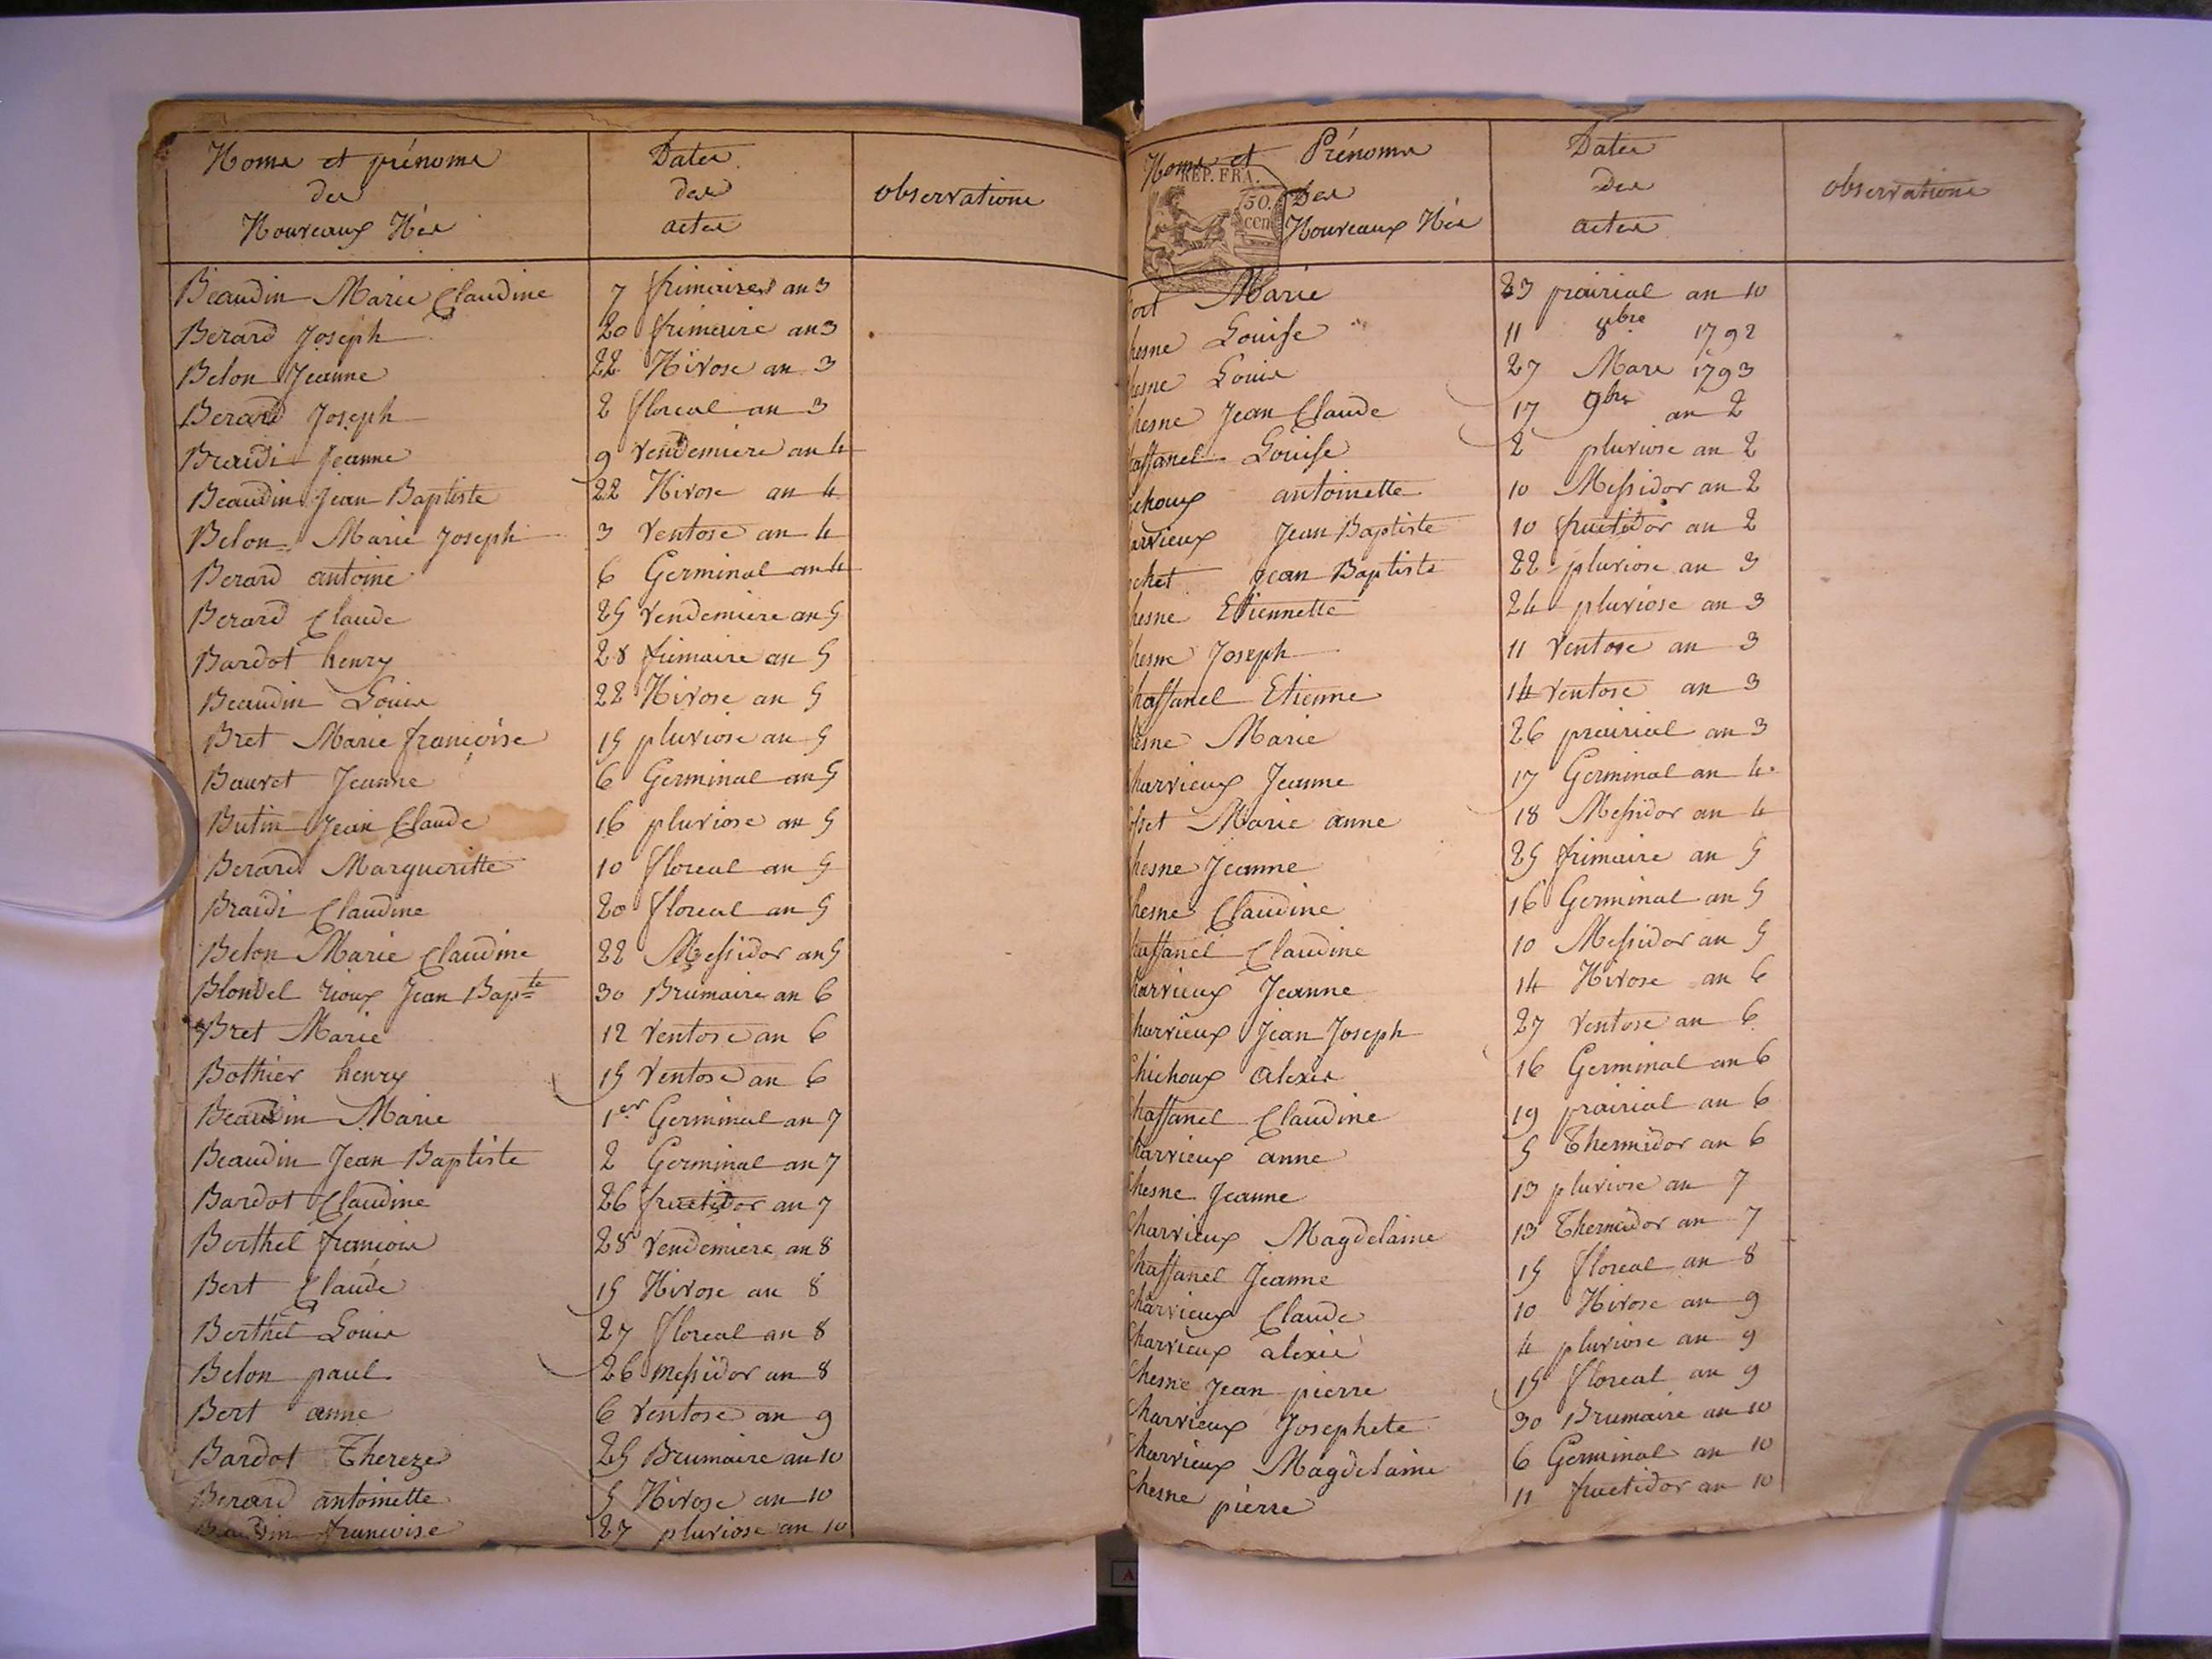 Noms et prénoms
des
Nouveaux Nés
Dates
des
actes
observations
Beaudin Marie Claudine 7 frimaire an 3
Berard Joseph 20 frimaire an 3
Belon Jeanne 22 Nivose an 3
Berard Joseph 2 floreal an 3
Braidi Jeanne 9 vendemiere an 4
Beaudin Jean Baptiste 22 Nivose an 4
Belon Marie Joseph 3 Ventose an 4
Berard antoine 6 Germinal an 4
Berard Claude 25 vendemiere an 5
Bardot henry 28 frimaire an 5
Beaudin Louis 22 Nivose an 5
Bret Marie françoise 15 pluviose an 5
Bauvet Jeanne 6 Germinal an 5
Butin Jean Claude 16 pluviose an 5
Berard Margueritte 10 floreal an 5
Braidi Claudine 20 floreal an 5
Belon Marie Claudine 22 Messidor an 5
Blondel rioux Jean Bapte 30 Brumaire an 6
Bret Marie 12 Ventose an 6
Bothier henry 15 Ventose an 6
Beaudin Marie 1er Germinal an 7
Beaudin Jean Baptiste 2 Germinal an 7
Bardot Claudine 26 fructidor an 7
Berthel françois 28 Vendemiere an 8
Bert Claude 15 Nivose an 8
Berthel Louis 27 floreal an 8
Belon paul 26 messidor an 8
Bert anne 6 Ventose an 9
Bardot Thereze 25 Brumaire an 10
Berard antoinette 5 Nivose an 10
Beaudin francoise 27 pluviose an 10
Noms et Prénoms
Des
Nouveaux Nés
REP. FRA.
50.
cen
Dates
des
actes
observations
fort Marie 23 prairial an 10
hesne Louise 11 8bre 1792
hesne Louis 27 Mars 1793
hesne Jean Claude 17 9bre an 2
haffanel Louise 2 pluviose an 2
ichoux antoinette 10 Messidor an 2
arvieux Jean Baptiste 10 fructidor an 2
chet Jean Baptiste 22 pluviose an 3
hesne Etiennette 24 pluviose an 3
hesne Joseph 11 Ventose an 3
haffanel Etienne 14 ventose an 3
hesne Marie 26 prairial an 3
harvieux Jeanne 17 Germinal an 4
offet Marie anne 18 Messidor an 4
hesne Jeanne 25 frimaire an 5
hesne Claudine 16 Germinal an 5
haffanel Claudine 10 Messidor an 5
harvieux Jeanne 14 Nivose an 6
harvieux Jean Joseph 27 Ventose an 6
Chichoux alexis 16 Germinal an 6
Chaffanel Claudine 19 prairial an 6
Charvieux anne 5 Thermidor an 6
Chesne Jeanne 13 pluviose an 7
Charvieux Magdelaine 13 Thermidor an 7
Chaffanel Jeanne 15 floreal an 8
Charvieux Claude 10 Nivose an 9
Charvieux alexis 4 pluviose an 9
Chesne Jean pierre 15 floreal an 9
Charvieux Josephete 30 Brumaire an 10
Charvieux Magdelaine 6 Germinal an 10
Chesne pierre 11 fructidor an 10